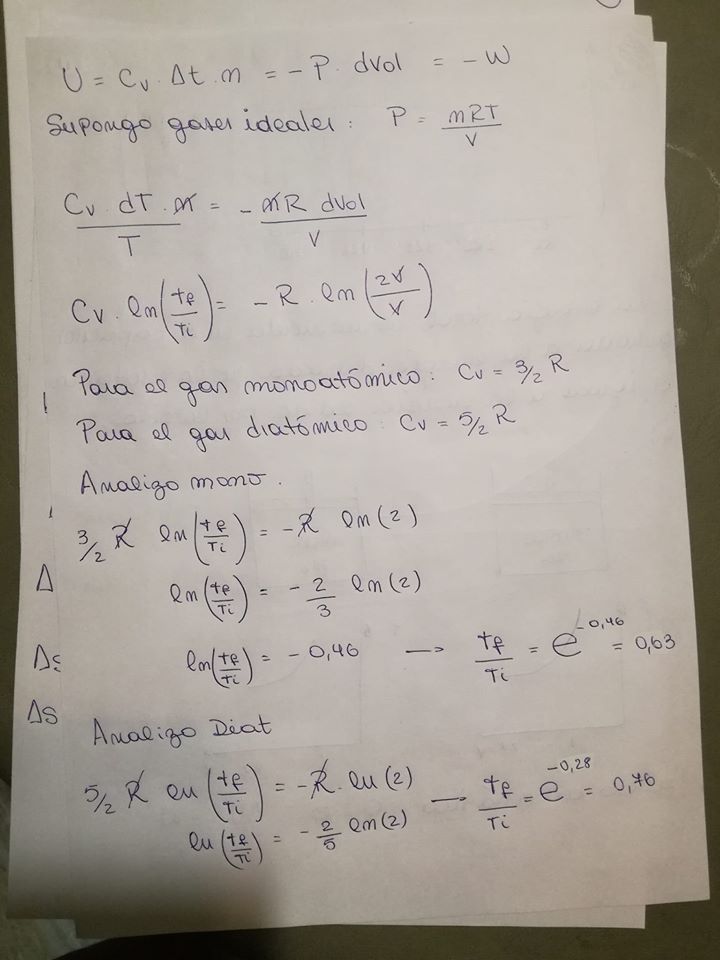 U = Cv · Δt · n = - P · dvol = - W
Supongo gases ideales : P = nRT/V
Cv · dT · n / T = - nR dvol / V
Cv · ln(tf/Ti) = - R · ln(2V/V)
Para el gas monoatómico : Cv = 3/2 R
Para el gas diatómico : Cv = 5/2 R
Analizo mono .
3/2 R ln(tf/Ti) = - R ln(2)
Δ
ln(tf/Ti) = - 2/3 ln(2)
Δs
ln(tf/Ti) = - 0,46 → tf/Ti = e^-0,46 = 0,63
ΔS
Analizo Diat
5/2 R ln(tf/Ti) = - R · ln(2) → tf/Ti = e^-0,28 = 0,76
ln(tf/Ti) = - 2/5 ln(2)